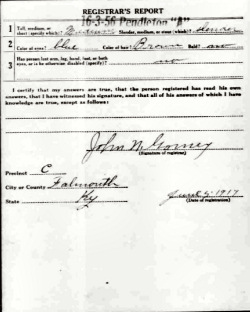 REGISTRAR'S REPORT
16-3-56 Pendleton "A"
1 Tall, medium, or short (specify which)? Medium Slender, medium, or stout (which)? Slender
2 Color of eyes? blue Color of hair? Brown Bald? no
3 Has person lost arm, leg, hand, foot, or both eyes, or is he otherwise disabled (specify)? no
I certify that my answers are true, that the person registered has read his own
answers, that I have witnessed his signature, and that all of his answers of which I have
knowledge are true, except as follows:
John N
(Signature of registrar)
Precinct C
City or County Falmouth
State Ky
June 5 1917
(Date of registration)